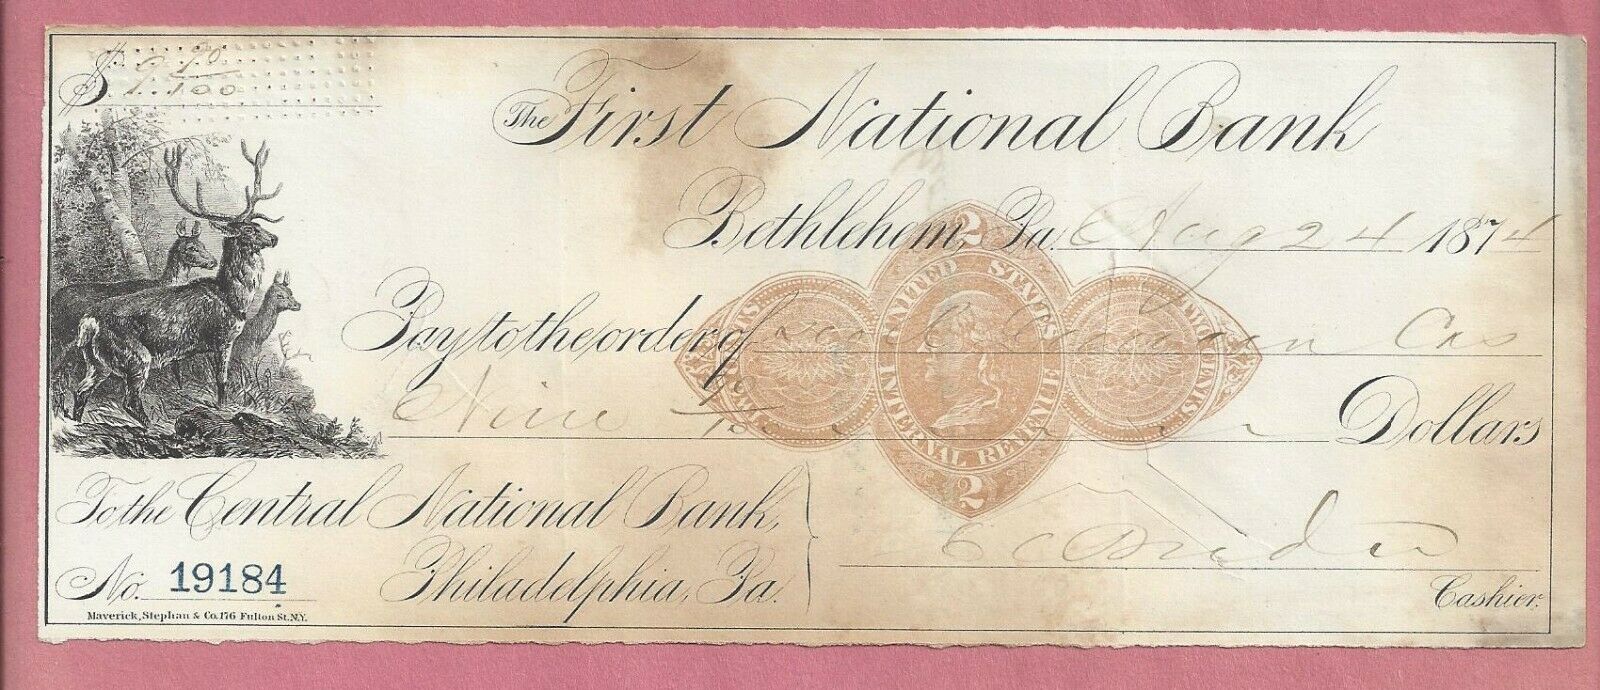 $ 9 90/100
The First National Bank
Bethlehem, Pa. Aug 24 1874
Pay to the order of Cas
Nine 90/100 Dollars
2 UNITED STATES INTERNAL REVENUE 2
TWO CENTS. TWO CENTS.
To the Central National Bank,
Philadelphia, Pa.
No. 19184
Cashier.
Maverick, Stephan & Co. 176 Fulton St. N.Y.